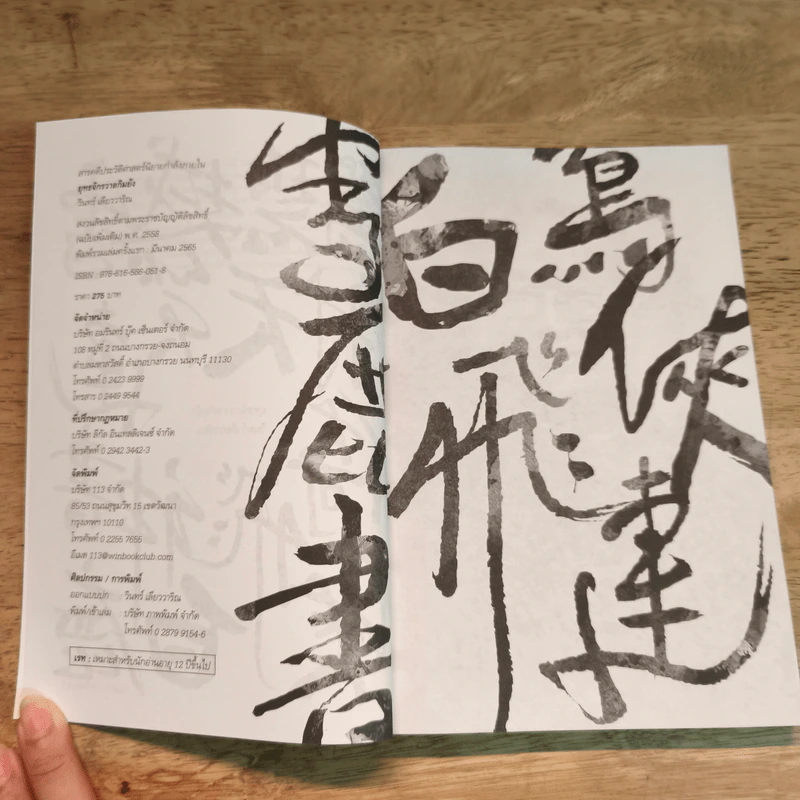 สารคดีประวัติศาสตร์นิยายกำลังภายใน
ยุทธจักรวาลกิมย้ง
วินทร์ เลียววาริณ
สงวนลิขสิทธิ์ตามพระราชบัญญัติลิขสิทธิ์
(ฉบับเพิ่มเติม) พ.ศ. 2558
พิมพ์รวมเล่มครั้งแรก : มีนาคม 2565
ISBN : 978-616-566-051-8
ราคา 275 บาท
จัดจำหน่าย
บริษัท อมรินทร์ บุ๊ค เซ็นเตอร์ จำกัด
108 หมู่ที่ 2 ถนนบางกรวย-จงถนอม
ตำบลมหาสวัสดิ์ อำเภอบางกรวย นนทบุรี 11130
โทรศัพท์ 0 2423 9999
โทรสาร 0 2449 9544
ที่ปรึกษากฎหมาย
บริษัท ลีกัล อินเทลลิเจนซ์ จำกัด
โทรศัพท์ 0 2942 3442-3
จัดพิมพ์
บริษัท 113 จำกัด
85/53 ถนนสุขุมวิท 15 เขตวัฒนา
กรุงเทพฯ 10110
โทรศัพท์ 0 2255 7655
อีเมล 113@winbookclub.com
ศิลปกรรม / การพิมพ์
ออกแบบปก : วินทร์ เลียววาริณ
พิมพ์/เข้าเล่ม : บริษัท ภาพพิมพ์ จำกัด
โทรศัพท์ 0 2879 9154-6
เรท : เหมาะสำหรับนักอ่านอายุ 12 ปีขึ้นไป
俠連
白飛
鹿書